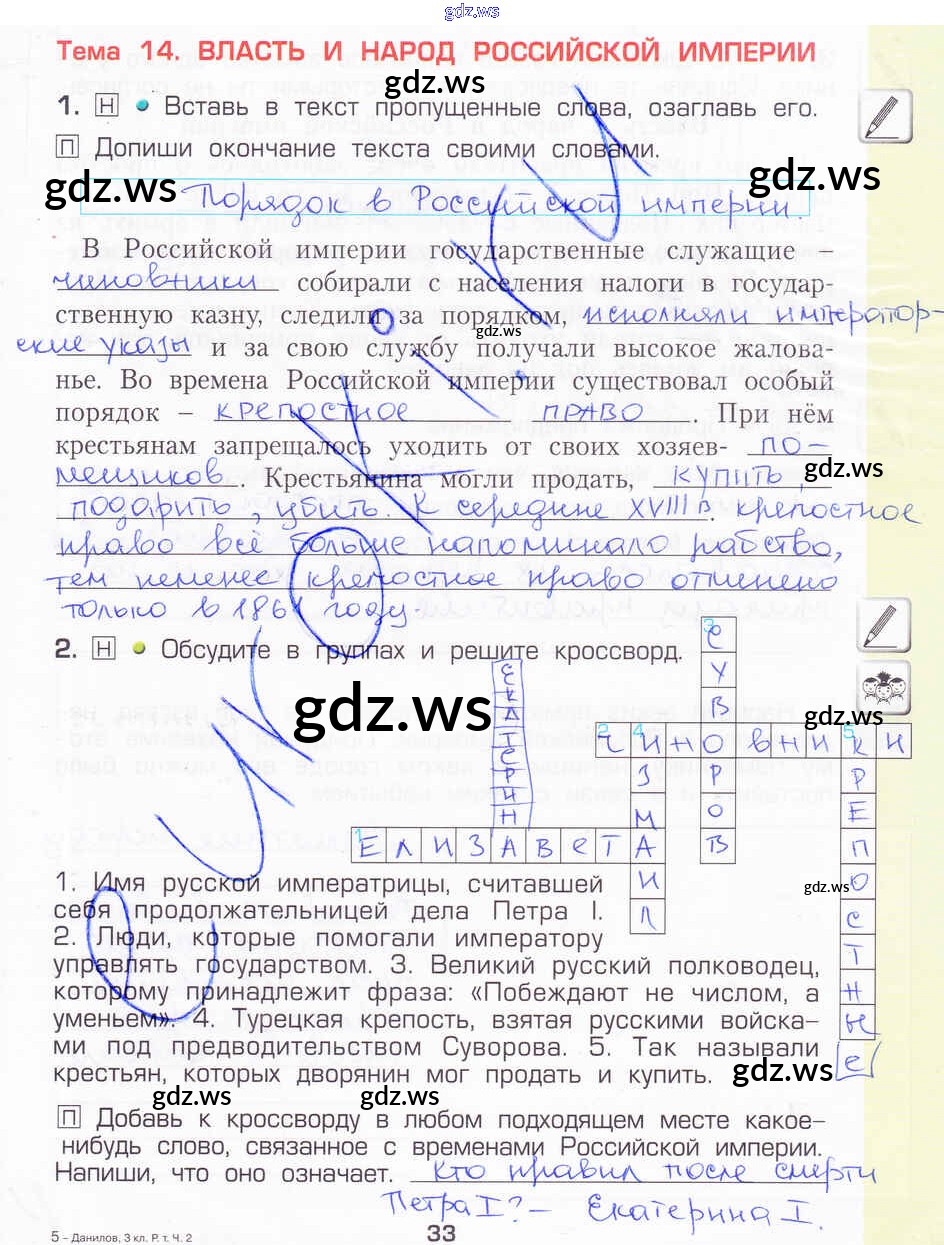 gdz.ws
Тема 14. ВЛАСТЬ И НАРОД РОССИЙСКОЙ ИМПЕРИИ
gdz.ws
1. Н • Вставь в текст пропущенные слова, озаглавь его.
П Допиши окончание текста своими словами.
gdz.ws gdz.ws
Порядок в Российской империи.
В Российской империи государственные служащие
чиновники собирали с населения налоги в государ-
ственную казну, следили за порядком, исполняли император-
gdz.ws
ские указы и за свою службу получали высокое жалова-
нье. Во времена Российской империи существовал особый
порядок – крепостное право. При нём
крестьянам запрещалось уходить от своих хозяев- по-
gdz.ws
мещиков. Крестьянина могли продать, купить,
подарить, убить. К середине XVIII в. крепостное
право всё больше напоминало рабство,
тем неменее крепостное право отменено
только в 1861 году.
2. Н • Обсудите в группах и решите кроссворд.
gdz.ws
gdz.ws
3 СУВОРОВ
ЕКАТЕРИНА
2 ЧИНОВНИКИ
4 ИЗМАИЛ
5 КРЕПОСТНЫЕ
1 ЕЛИЗАВЕТА
1. Имя русской императрицы, считавшей
gdz.ws
себя продолжательницей дела Петра I.
2. Люди, которые помогали императору
управлять государством. 3. Великий русский полководец,
которому принадлежит фраза: «Побеждают не числом, а
уменьем». 4. Турецкая крепость, взятая русскими войска-
ми под предводительством Суворова. 5. Так называли
крестьян, которых дворянин мог продать и купить.
gdz.ws
gdz.ws gdz.ws
П Добавь к кроссворду в любом подходящем месте какое-
нибудь слово, связанное с временами Российской империи.
Напиши, что оно означает. Кто правил после смерти
Петра I? – Екатерина I.
5 – Данилов, 3 кл. Р. т. Ч. 2
33